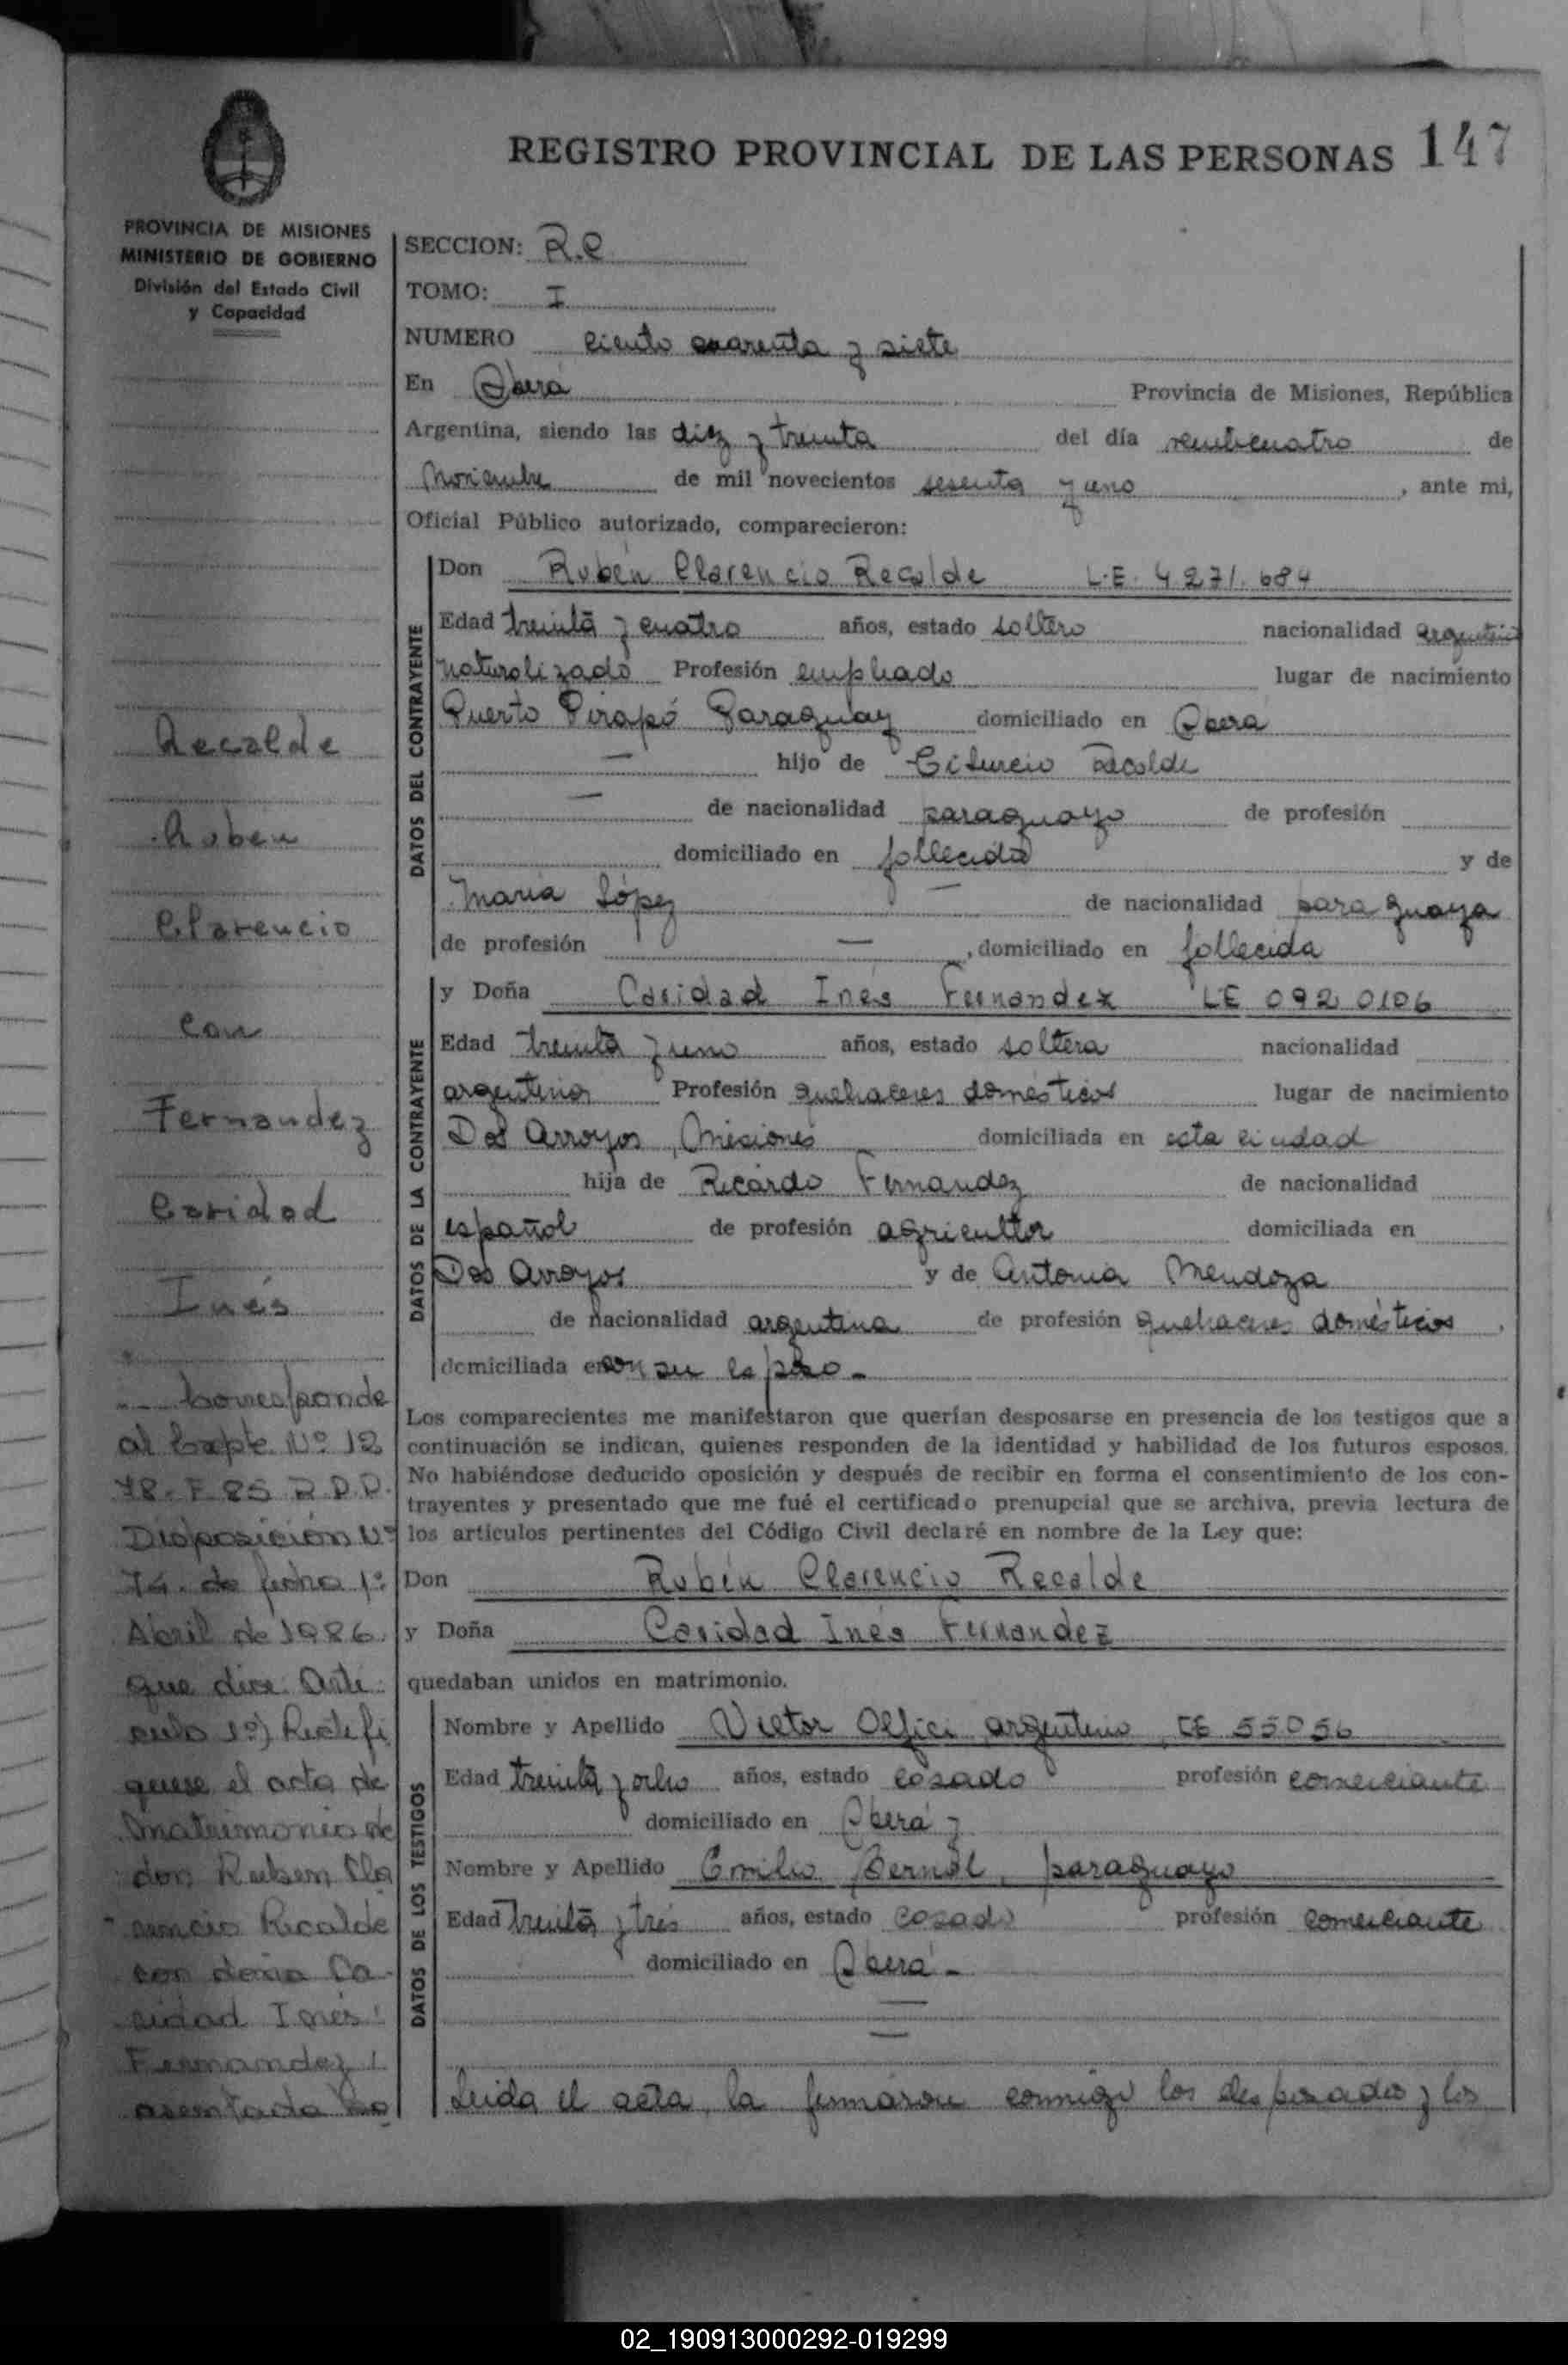 REGISTRO PROVINCIAL DE LAS PERSONAS 147
PROVINCIA DE MISIONES
MINISTERIO DE GOBIERNO
División del Estado Civil
y Capacidad
SECCION: R.C
TOMO: I
NUMERO ciento cuarenta y siete
En Oberá Provincia de Misiones, República
Argentina, siendo las diez y treinta del día veinticuatro de
Noviembre de mil novecientos sesenta y uno, ante mi,
Oficial Público autorizado, comparecieron:
DATOS DEL CONTRAYENTE
Don Rubén Clarencio Recalde L.E. 4271.684
Edad treinta y cuatro años, estado soltero nacionalidad argentino
naturalizado Profesión empleado lugar de nacimiento
Puerto Pirapó Paraguay domiciliado en Oberá
— hijo de Recalde
— de nacionalidad paraguayo de profesión
domiciliado en fallecido y de
María López — de nacionalidad paraguaya
de profesión —, domiciliado en fallecida
DATOS DE LA CONTRAYENTE
y Doña Caridad Inés Fernandez LE 092 0106
Edad treinta y uno años, estado soltera nacionalidad
argentina Profesión quehaceres domésticos lugar de nacimiento
Dos Arroyos, Misiones domiciliada en esta ciudad
hija de Ricardo Fernandez de nacionalidad
español de profesión agricultor domiciliada en
Dos Arroyos y de Antonia Mendoza
de nacionalidad argentina de profesión quehaceres domésticos,
domiciliada en con su esposo.-
Los comparecientes me manifestaron que querían desposarse en presencia de los testigos que a
continuación se indican, quienes responden de la identidad y habilidad de los futuros esposos.
No habiéndose deducido oposición y después de recibir en forma el consentimiento de los con-
trayentes y presentado que me fué el certificado prenupcial que se archiva, previa lectura de
los artículos pertinentes del Código Civil declaré en nombre de la Ley que:
Don Rubén Clarencio Recalde
y Doña Caridad Inés Fernandez
quedaban unidos en matrimonio.
DATOS DE LOS TESTIGOS
Nombre y Apellido Victor Olfici argentino, CE 55056
Edad treinta y ocho años, estado casado profesión comerciante
domiciliado en Oberá y
Nombre y Apellido Emilio Bernal, paraguayo
Edad treinta y tres años, estado casado profesión comerciante
domiciliado en Oberá.-
—
—
Leida el acta, la firmaron conmigo los desposados y los
Recalde
Ruben
Clarencio
con
Fernandez
Caridad
Inés
Corresponde
al Expte Nº 12
78-F-85 R.P.P.
Disposición Nº
74. de fecha 1º
Abril de 1986.
que dice: Artí-
culo 1º) Rectifi
quese el acta de
Matrimonio de
don Ruben Cla
rencio Recalde
con doña Ca-
ridad Inés
Fernandez,
asentada
02_190913000292-019299